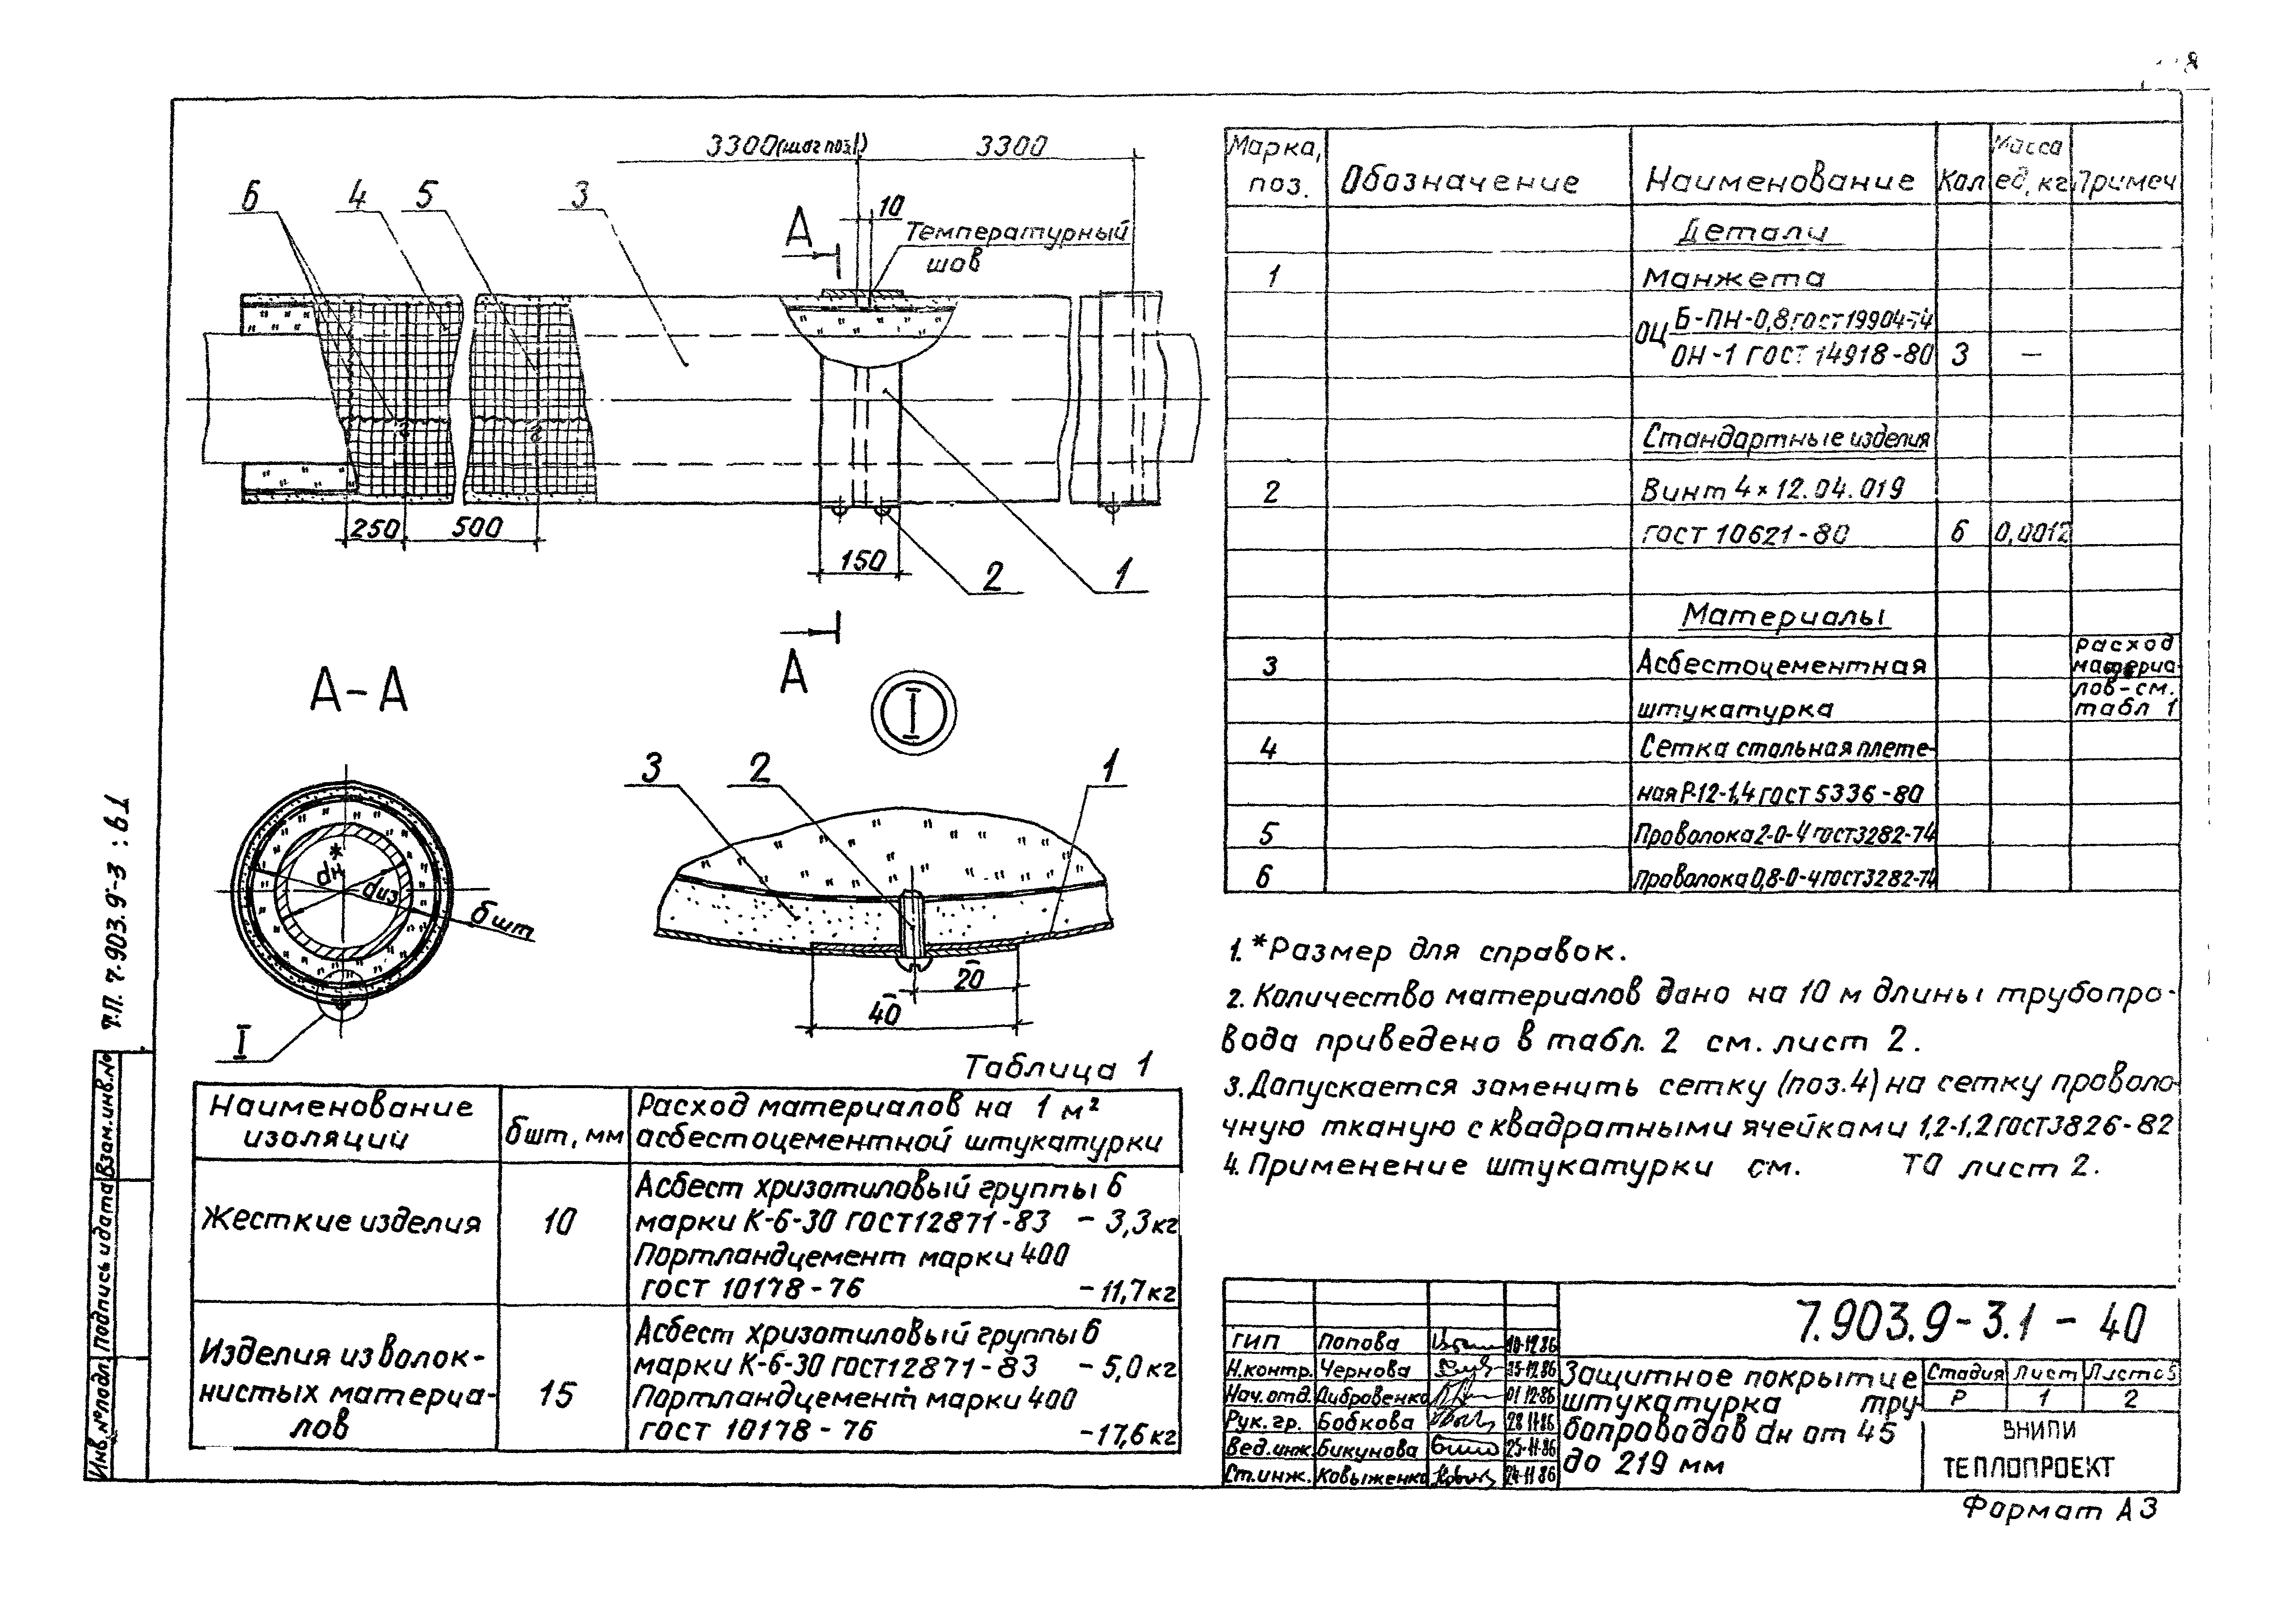 3300(шаг поз.1)
3300
6
4
5
3
А
10
Температурный
шов
250
500
150
2
1
А
А-А
I
3
2
1
dн*
dиз
δшт
I
20
40
Таблица 1
Наименование
изоляций
δшт, мм
Расход материалов на 1 м²
асбестоцементной штукатурки
Жесткие изделия
10
Асбест хризотиловый группы 6
марки К-6-30 ГОСТ 12871-83 - 3,3кг
Портландцемент марки 400
ГОСТ 10178-76 - 11,7кг
Изделия из волок-
нистых материа-
лов
15
Асбест хризотиловый группы 6
марки К-6-30 ГОСТ 12871-83 - 5,0кг
Портландцемент марки 400
ГОСТ 10178-76 - 17,6кг
Марка,
поз.
Обозначение
Наименование
Кол
Масса
ед, кг
Примеч
Детали
1
Манжета
ОЦ Б-ПН-0,8 ГОСТ 19904-74
ОН-1 ГОСТ 14918-80
3
—
Стандартные изделия
2
Винт 4×12.04.019
ГОСТ 10621-80
6
0,0012
Материалы
3
Асбестоцементная
штукатурка
расход
материа-
лов-см.
табл 1
4
Сетка стальная плете-
ная Р-12-1,4 ГОСТ 5336-80
5
Проволока 2-0-4 ГОСТ 3282-74
6
Проволока 0,8-0-4 ГОСТ 3282-74
1. *Размер для справок.
2. Количество материалов дано на 10 м длины трубопро-
вода приведено в табл. 2 см. лист 2.
3. Допускается заменить сетку (поз.4) на сетку проволо-
чную тканую с квадратными ячейками 1,2-1,2 ГОСТ 3826-82
4. Применение штукатурки см. ТО лист 2.
7.903.9-3.1-40
ГИП Попова 10.12.86
Н.контр. Чернова 15.12.86
Нач.отд. Дибровенко 01.12.86
Рук. гр. Бобкова 28.11.86
Вед.инж. Бикунова 25.11.86
Ст.инж. Ковыженко 24.11.86
Защитное покрытие
штукатурка тру-
бопроводов dн от 45
до 219 мм
Стадия
Лист
Листов
Р
1
2
ВНИПИ
ТЕПЛОПРОЕКТ
Формат А3
Т.П. 7.903.9-3 : в.1
Взам.инв.№
Подпись и дата
Инв.№ подл.
8